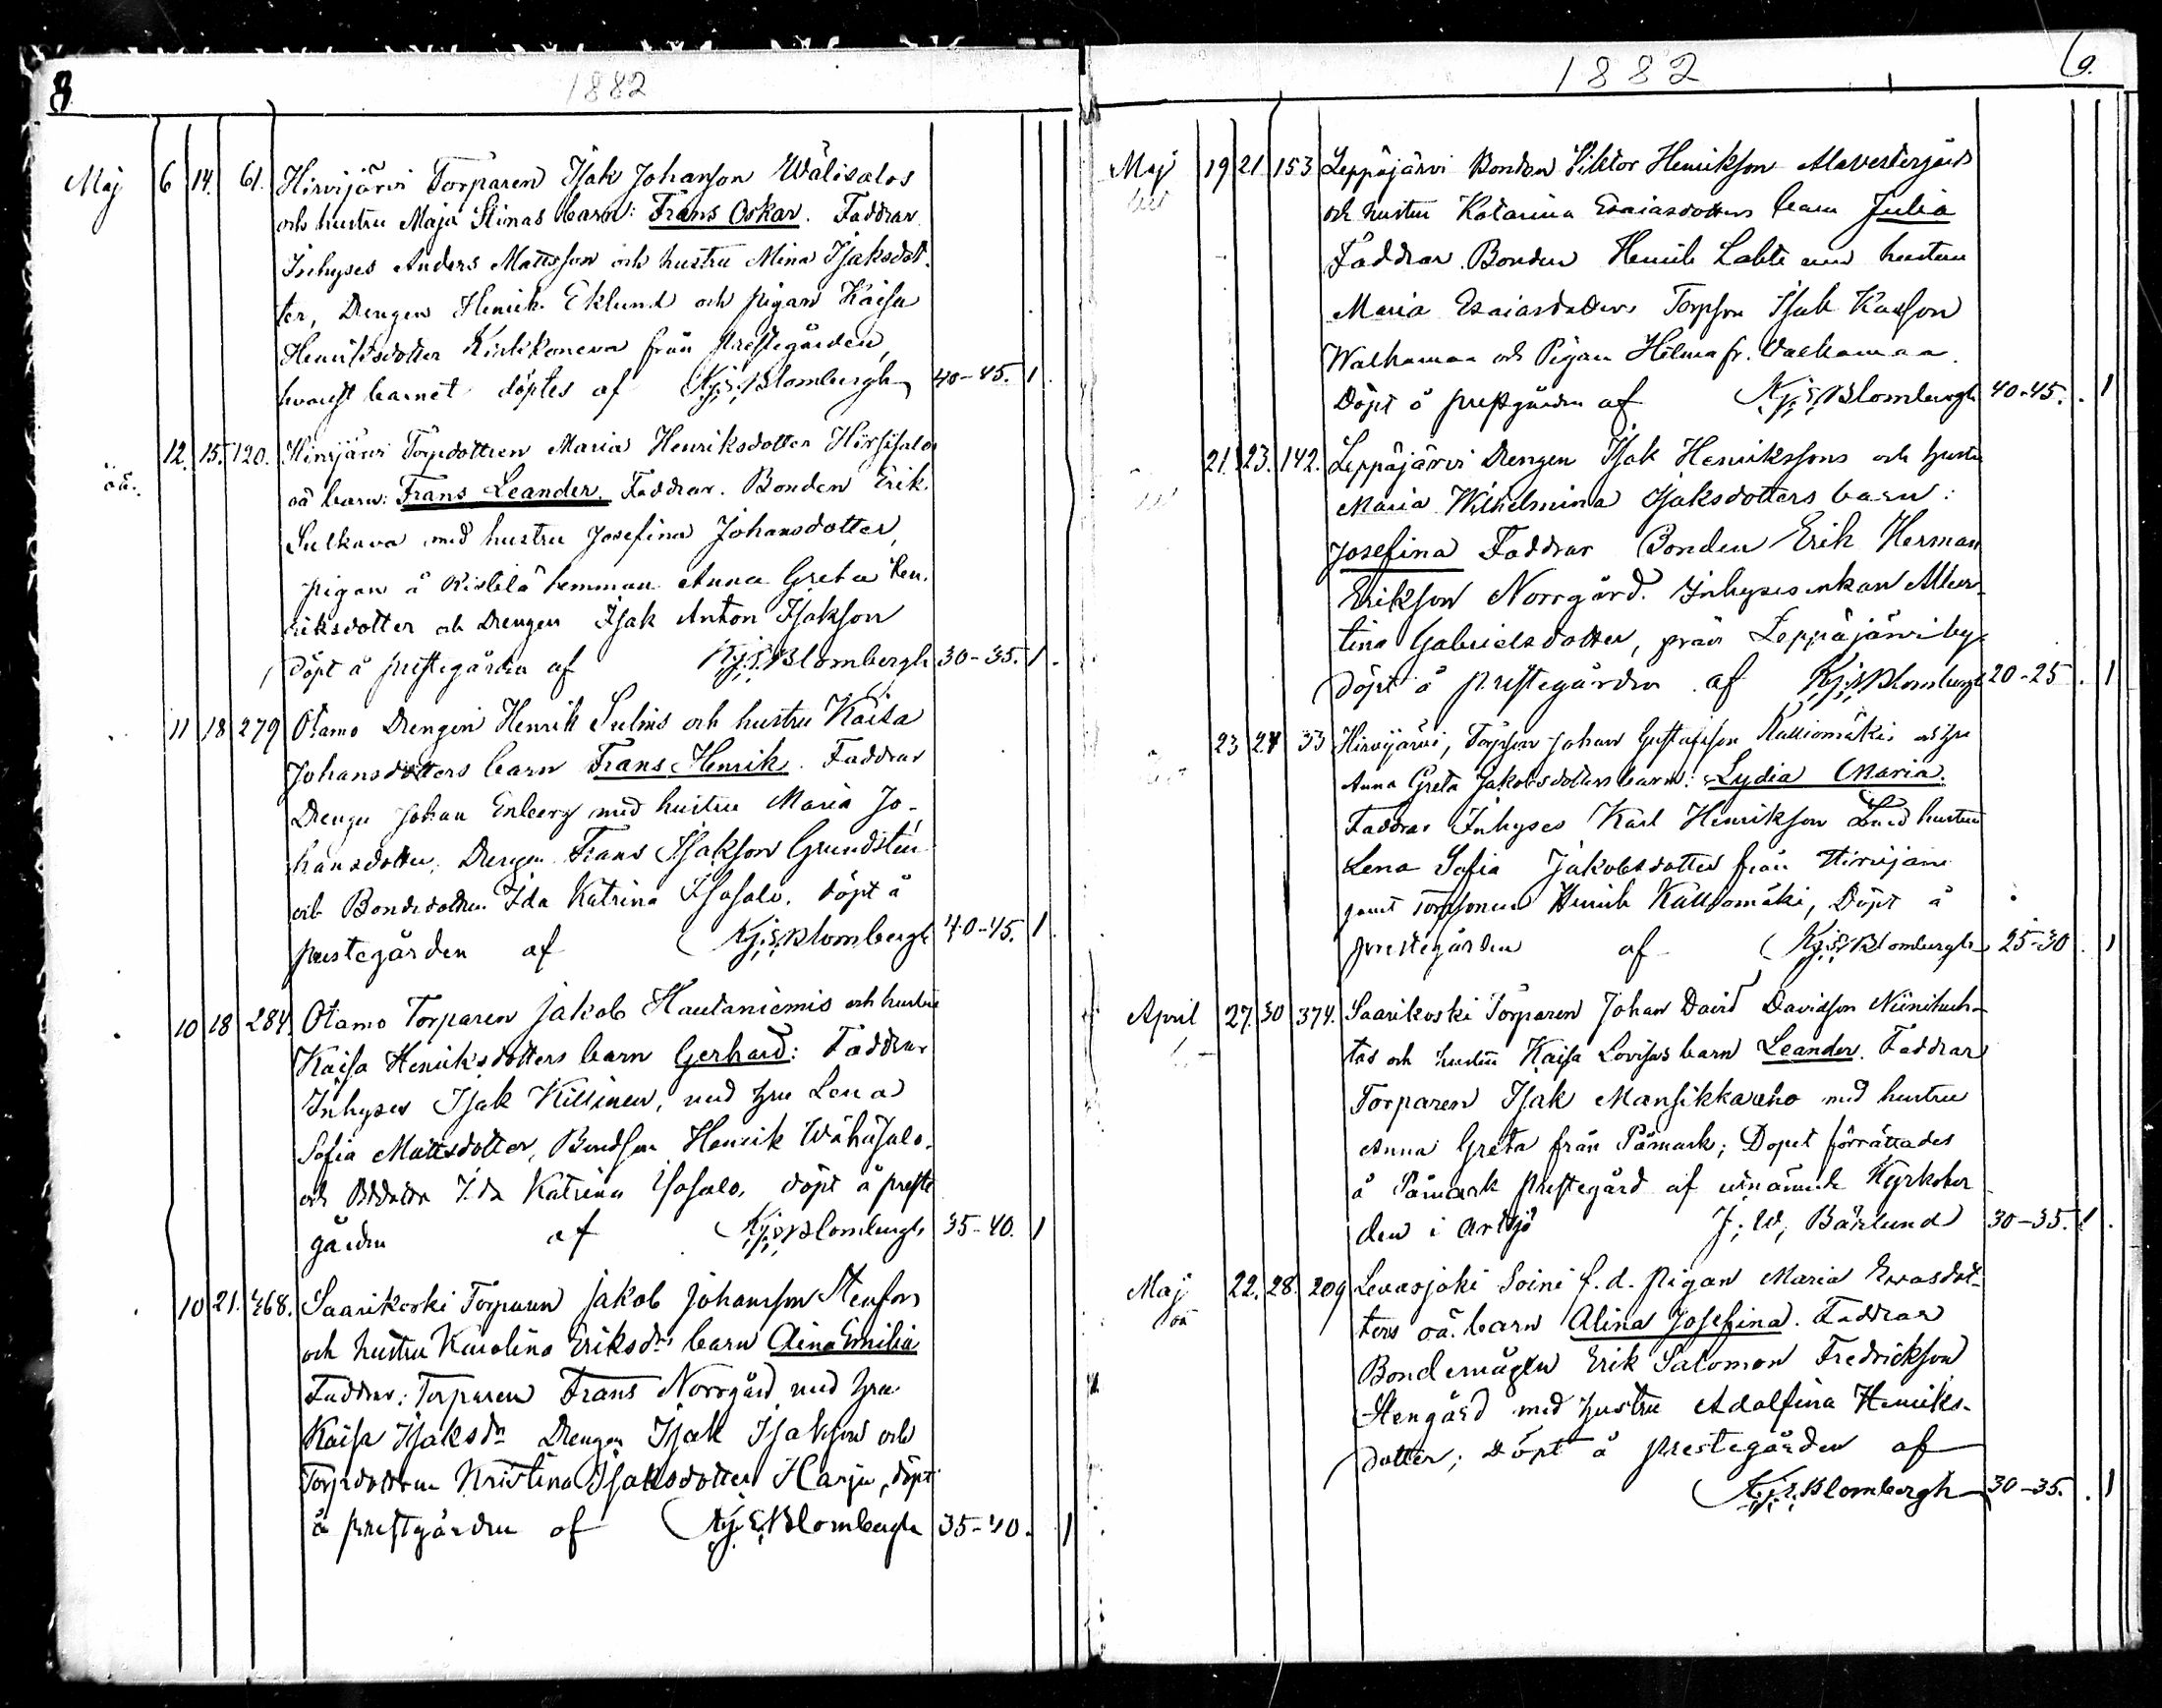 8
1882
Maj 6 14. 61. Hirvijärvi Torparen Isak Johanson Wälisalos
och hustru Maja Stinas barn: Frans Oskar. Faddrar
Inhyses Anders Mattsson och hustru Mina Isaksdot-
ter, Drengen Henrik Eklund och pigan Kaisa
Henriksdotter från Prestegården,
hvarest barnet döptes af Kj: S: Blombergh 40-45. 1
12. 15. 120. Hirvijärvi Torpdottren Maria Henriksdotter Hirsisalos
oä.
oä barn: Frans Leander. Faddrar. Bonden Erik
Sulkava med hustru Josefina Johansdotter,
pigan å hemman Anna Greta Hen-
riksdotter och Drengen Isak Anton Isakson
döpt å prestegården af Kj: S: Blombergh 30-35. 1
11 18 279 Otamo Drengen Henrik Sulins och hustru Kaisa
Johansdotters barn Frans Henrik. Faddrar
Drengen Johan Enberg med hustru Maria Jo-
hansdotter, Drengen Frans Isakson Grundstén
och Bondedottren Ida Katrina Isosalo. döpt å
prestegården af Kj: S: Blombergh 40-45. 1
10 18 284. Otamo Torparen Jakob Hautaniemis och hustru
Kaisa Henriksdotters barn Gerhard: Faddrar
Inhyses Isak Killinen, med hru Lena
Sofia Mattsdotter, Bondson Henrik Wähäsalo.
och Bddottr Ida Katrina Isosalo, döpt å preste
gården af Kj: S: Blombergh 35-40. 1
10 21. 468. Saarikoski Torparen Jakob Johansson Stenfors
och hustru Karolina Eriksdrs barn Aina Emilia
Faddrar: Torparen Frans Norrgård med hru
Kaisa Isaksdr Drengen Isak Isakson och
Torpdottren Kristina Isaksdotter Harju, döpt
å prestgården af Kj: S: Blombergh 35-40. 1
1882
9.
Maj 19 21 153 Leppäjärvi Bonden Viktor Henrikson Alavestergårds
och hustru Katarina Esaiasdotters barn Julia
Faddrar Bonden Henrik Lahti med hustru
Maria Esaiasdotter, Torpson Isak Karlson
Walkamaa och Pigan Hilma fr. Valkamaa.
Döpt å prestgården af Kj: S: Blombergh 40-45. 1
21. 23. 142. Leppäjärvi Drengen Isak Henrikssons och hustru
Maria Wilhelmina Isaksdotters barn:
Josefina Faddrar Bonden Erik Herman
Erikson Norrgård. Inhysesenkan Alber-
tina Gabrielsdotter, från Leppäjärvi by.
döpt å Prestegården af Kj: S: Blombergh 20-25. 1
23 24 33 Hirvijärvi, Torpson Johan Gustafsson Kalliomäki och hru
Anna Greta Jakobsdotters barn: Lydia Maria.
Faddrar Inhyses Karl Henrikson L med hustru
Lena Sofia Jakobsdotter från Hirvijärvi
samt Torpsonen Henrik Kalliomäki, Döpt å
prestegården af Kj: S: Blombergh 25-30. 1
April 27. 30 374. Saarikoski Torparen Johan David Davidson Niinihuh-
tas och hustru Kaisa Lovisas barn Leander. Faddrar
Torparen Isak Mansikkaaho med hustru
Anna Greta från Påmark; Dopet förrättades
å Påmark Prestegård af utnämnde Kyrkoher
den i Artsjö J. W. Bäklund 30-35. 1
Maj 22. 28. 209 Levasjoki Soini f.d. pigan Maria Evasdot-
oä
ters oä. barn Alina Josefina. Faddrar
Bondemågen Erik Salomon Fredrickson
Stengård med hustru Adolfina Henriks-
dotter; Döpt å prestegården af
Kj: S: Blombergh 30-35. 1